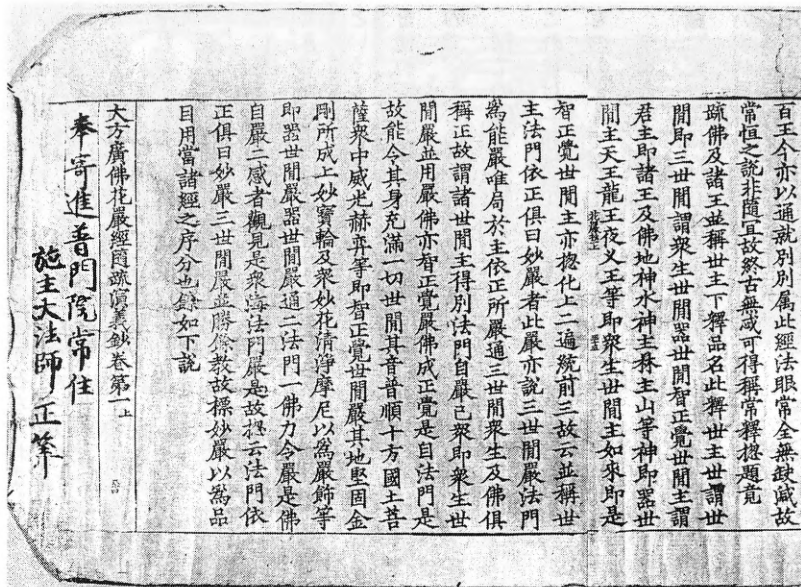 百王今亦以通就別別属此經法眼常全無缺減故
常恒之說非隨宜故終古無减可得稱常釋揔題竟
疏佛及諸王並稱世主下釋品名此釋世主世謂世
閒即三世閒謂衆生世閒器世閒智正覺世閒主謂
君主即諸王及佛地神水神主林主山等神即器世
閒主天王龍王夜叉王等即衆生世閒主如來即是
智正覺世閒主亦揔化上二遍統前三故云並稱世
主法門依正俱曰妙嚴者此嚴亦說三世閒嚴法門
為能嚴唯局於主依正所嚴通三世閒衆生及佛俱
稱正故謂諸世閒主得別法門自嚴已衆即衆生世
閒嚴並用嚴佛亦智正覺嚴佛成正覺是自法門是
故能令其身充滿一切世閒其音普順十方國土菩
薩衆中威光赫弈等即智正覺世閒嚴其地堅固金
剛所成上妙寶輪及衆妙花清淨摩尼以為嚴飾等
即器世閒嚴器世閒嚴通二法門一佛力令嚴是佛
自嚴二感者觀見是衆海法門嚴是故揔云法門依
正俱曰妙嚴三世閒嚴並勝餘教故標妙嚴以為品
目用當諸經之序分也餘如下說
大方廣佛花嚴經隨疏演義鈔卷第一上
奉寄進普門院常住
施主大法師